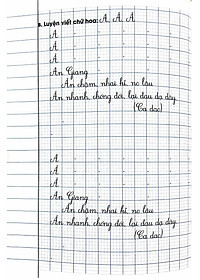 a. Luyện viết chữ hoa: A A A
A
A
A
An Giang
Ăn chậm, nhai kĩ, no lâu
Ăn nhanh, chóng đói, lại đau dạ dày.
(Ca dao)
A
A
A
An Giang
Ăn chậm, nhai kĩ, no lâu
Ăn nhanh, chóng đói, lại đau dạ dày.
(Ca dao)